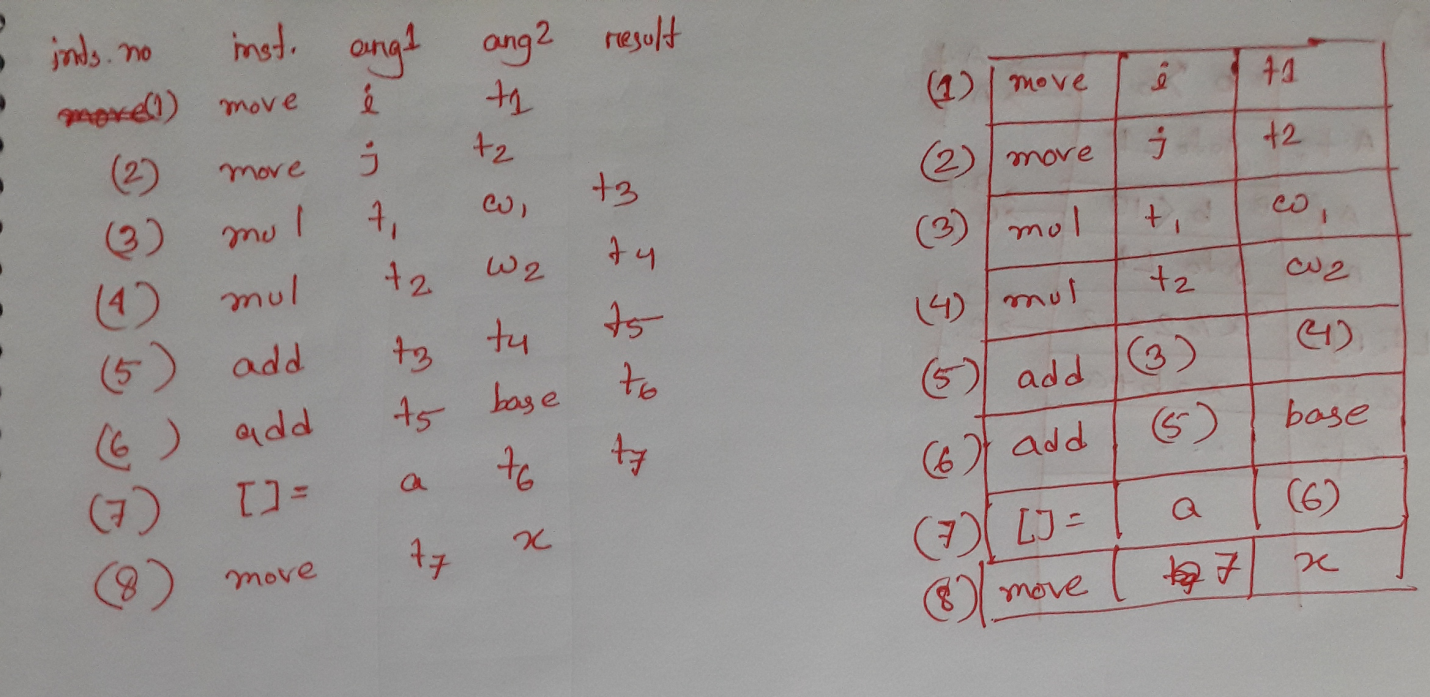 inds. no inst. arg1 arg2 result
(1) move i t1
(2) move j t2
(3) mul t1 w1 t3
(4) mul t2 w2 t4
(5) add t3 t4 t5
(6) add t5 base t6
(7) []= a t6 t7
(8) move t7 x
(1) move i t1
(2) move j t2
(3) mul t1 w1
(4) mul t2 w2
(5) add (3) (4)
(6) add (5) base
(7) []= a (6)
(8) move 7 x